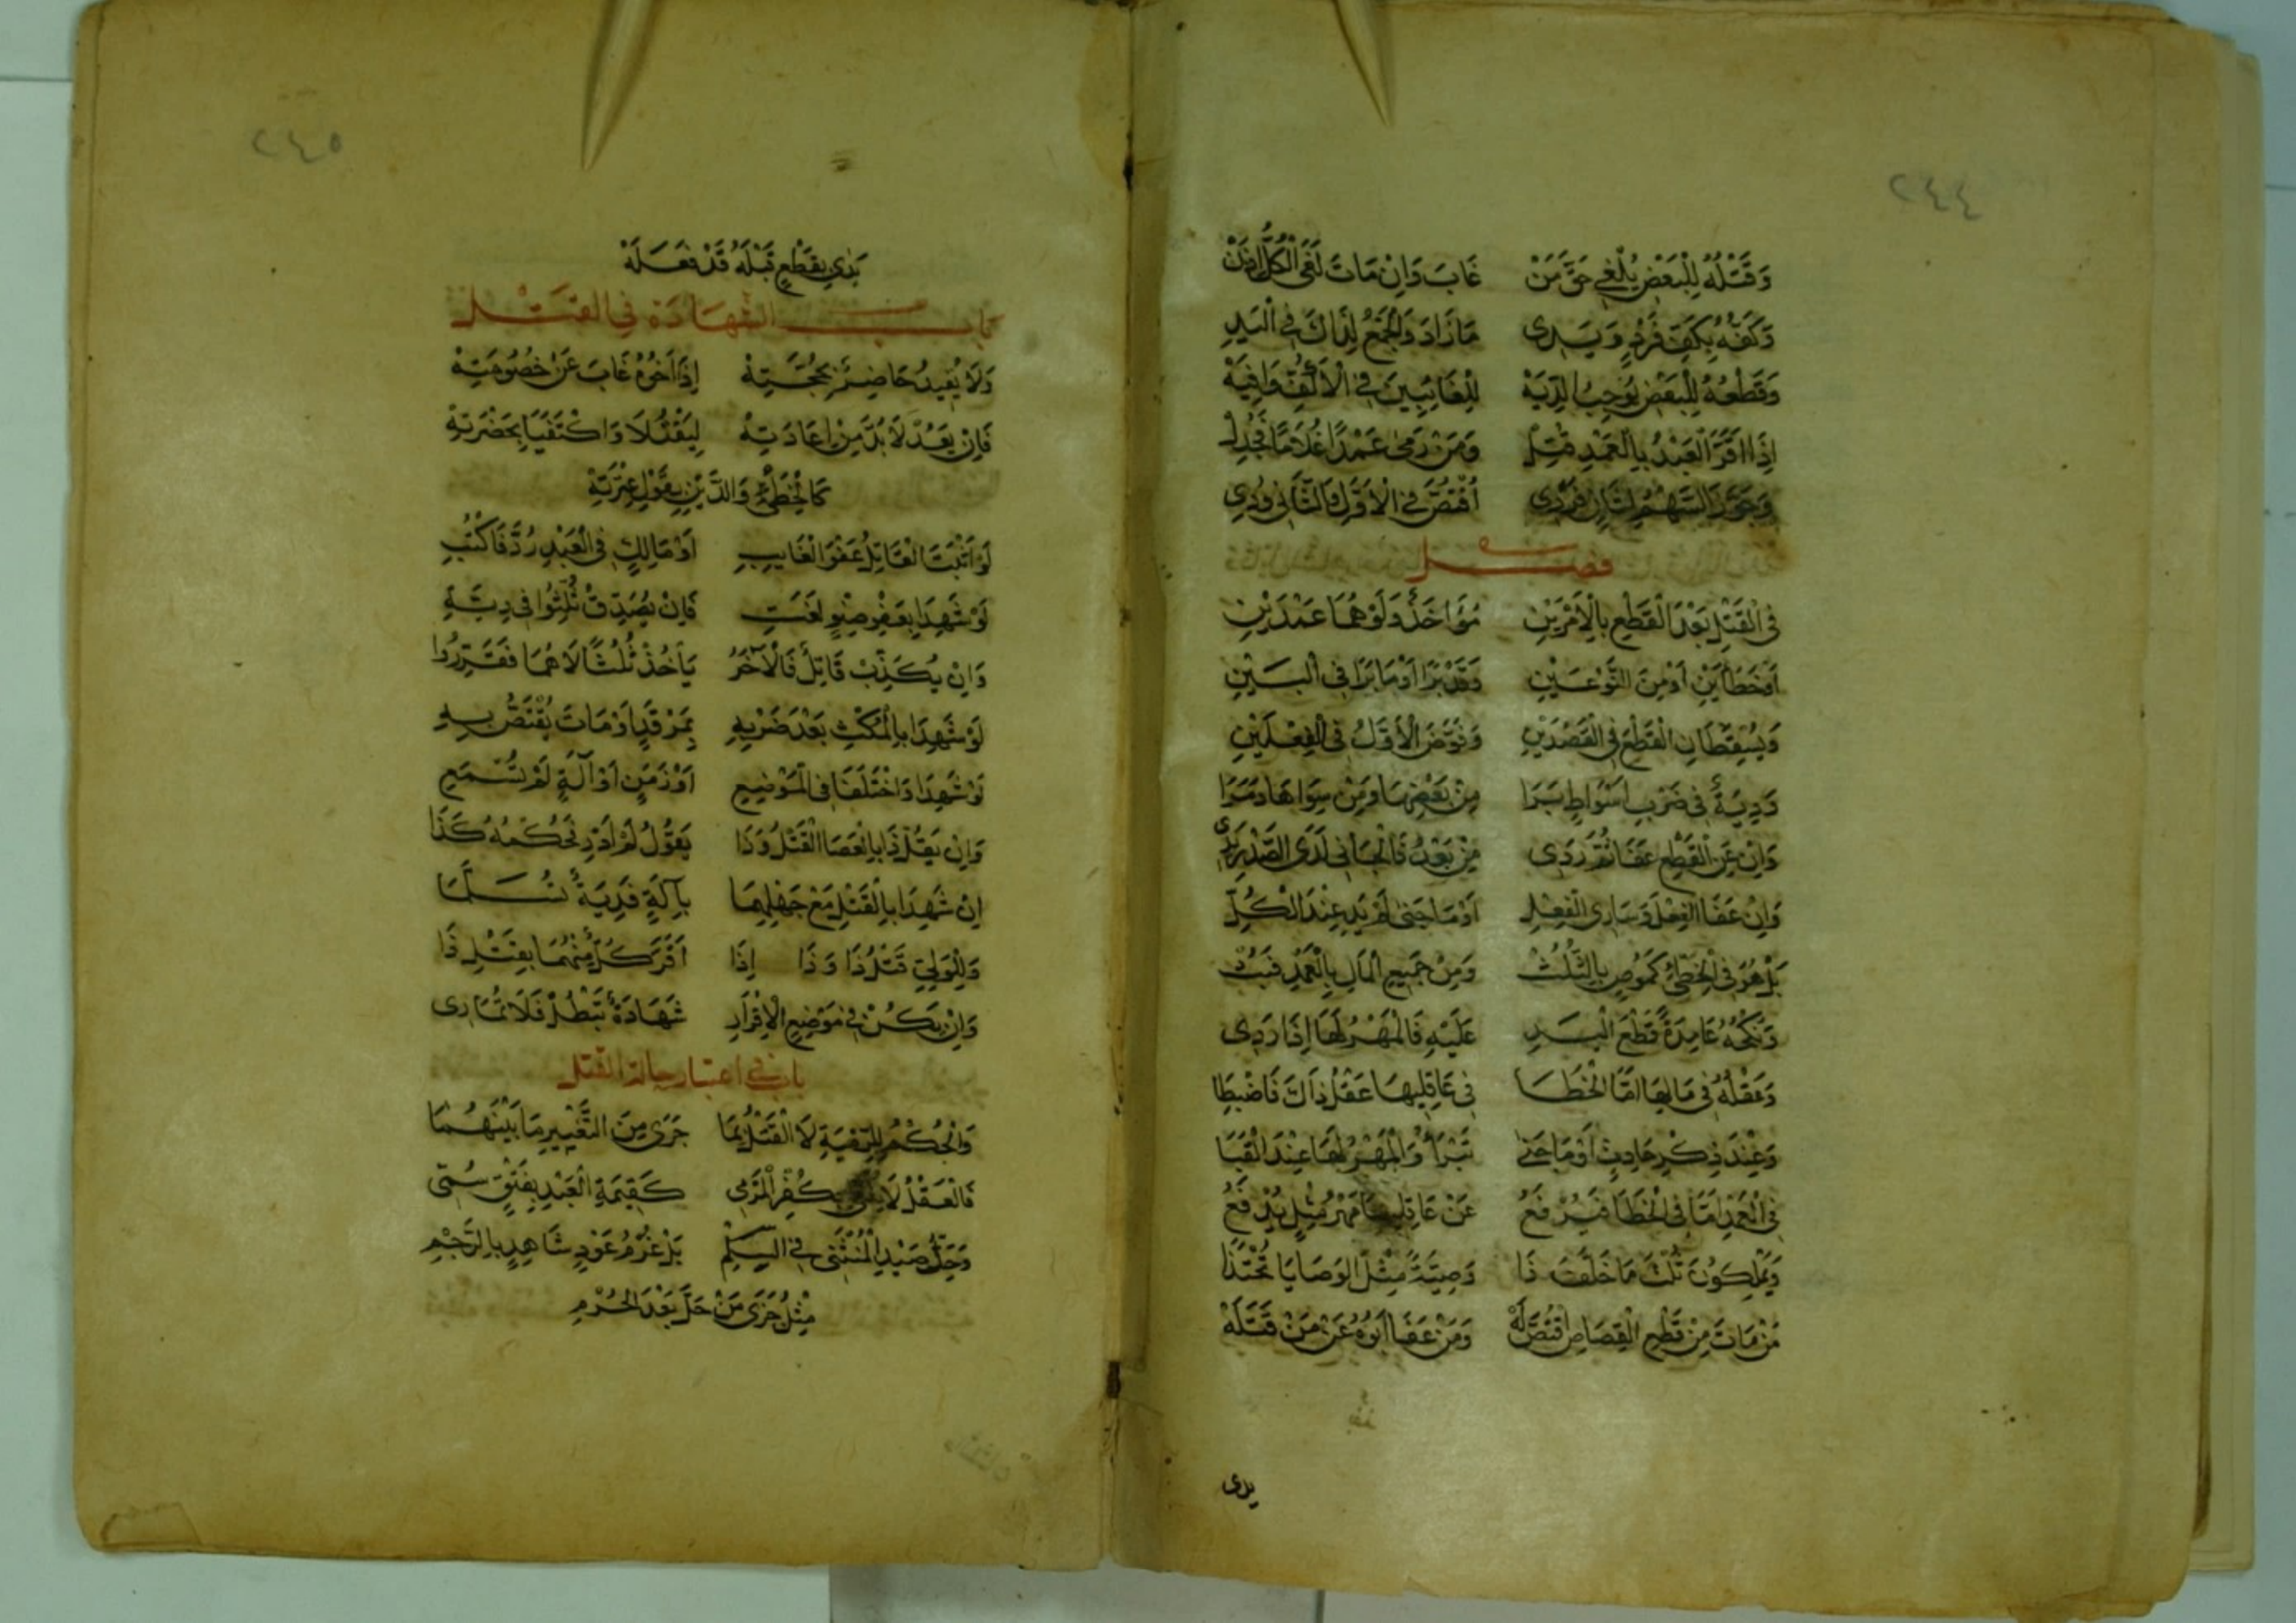 ٢٤٤
وَقَتْلُهُ لِلْبَعْضِ يُلْغِي حَقَّ مَنْ غَابَ وَاِنْ مَاتَ لَغَى الْكُلُّ اِذَنْ
وَكَفُّهُ بِكَفِّ فَرْدٍ وَيَدِى مَا زَادَ وَالْجَمْعُ لِذَاكَ فِي الْيَدِ
وَقَطْعُهُ لِلْبَعْضِ يُوجِبُ الدِّيَهْ لِلْغَائِبِينَ فِي الْأَكُفِّ وَافِيَهْ
إِذَا اقَرَّ الْعَبْدُ بِالْعَمْدِ قُتِلْ وَمَنْ رَمَى عَمْدًا غُلَامًا
وَجَوَّزَ السَّهْمُ لِثَانٍ فَرَدِى اُقْتُصَّ فِي الْاَوَّلِ وَالثَّانِى وُدِى
فصل
فِى الْقَتْلِ بَعْدَ الْقَطْعِ بِالْأَمْرَيْنِ مُؤَاخَذٌ وَلَوْ هُمَا عَمْدَيْنِ
اَوْ خَطَأَيْنِ اَوْ مِنَ النَّوْعَيْنِ وَقَدْ بَرَا اَوْ مَا بَرَا فِى الْبَيْنِ
وَيُسْقِطَانِ الْقَطْعَ فِى الْقَصْدَيْنِ الْأَوَّلُ فِى الْفِعْلَيْنِ
وَدِيَةٌ فِى ضَرْبِ اَسْوَاطٍ بَرَا مِنْ بَعْضِهَا وَمِنْ سِوَاهَا
وَاِنْ عَنِ الْقَطْعِ عَفَا ثُمَّ رَدِى مِنْ بَعْدُ فَالْجَانِى لَدَى الصَّدْرِ يَدِى
وَاِنْ عَفَا الْفِعْلَ وَسَارِى الْفِعْلِ اَوْ مَا جَنَى لَمْ يَدِ عِنْدَ الْكُلِّ
بَلْ هُوَ فِى الْخِطْئِ كَمُوصٍ بِالثُّلُثْ وَمِنْ جَمِيعِ الْمَالِ بِالْعَمْدِ
وَنَكْحُهُ عَامِدَةً قَطْعَ الْيَدِ عَلَيْهِ فَالْمَهْرُ لَهَا اِذَا رَدِى
وَعَقْلُهُ فِى مَالِهَا اَمَّا الْخَطَا فِى عَاقِلِيهَا عَقْلُ ذَاكَ فَاضْبِطَا
وَعِنْدَ ذِكْرِ حَادِثٍ اَوْ مَا جَنَى تَبْرَأُ وَالْمَهْرُ لَهَا عِنْدَ
فِى الْعَمْدِ اَمَّا فِى الْخَطَا فَيُرْفَعُ عَنْ عَاقِلِيهَا مَهْرُ مِثْلٍ يُدْفَعُ
وَيَمْلِكُونَ ثُلْثَ مَا خَلَّفَ ذَا وَصِيَّةً مِثْلَ الْوَصَايَا تُحْتَذَا
مَنْ مَاتَ مِنْ قَطْعِ الْقِصَاصِ اقْتُصَّ لَهْ وَمَنْ عَفَا اَبُوهُ عَنْ مَنْ قَتَلَهْ
يدى
٢٤٥
يَدِى بِقَطْعٍ قَبْلَهُ قَدْ فَعَلَهْ
باب الشهادة في القتل
وَلَا يُعِيدُ حَاضِرٌ بِحُجَّتِهْ إِذَا اَخُوهُ غَابَ عَنْ خُصُومَتِهْ
فَاِنْ يَعُدْ لَا بُدَّ مِنْ اِعَادَتِهْ لِيَقْتُلَا وَاكْتَفَيَا بِحَضْرَتِهْ
كَالْخِطْئِ وَالدَّيْنِ بِقَوْلِ عِتْرَتِهْ
لَوْ اَثْبَتَ الْقَاتِلُ عَفْوَ الْغَايِبِ اَوْ مَالِكٍ فِى الْعَبْدِ رُدَّ فَاكْتُبِ
لَوْ شَهِدَا بِعَفْوِ صِنْوٍ لَغَتِ فَاِنْ يُصَدِّقْ ثُلِّثُوا فِى دِيَةِ
وَاِنْ يُكَذِّبْ قَاتِلٌ فَالْآخَرُ يَأْخُذْ ثُلُثًا لَا هُمَا فَقَرِّرُوا
لَوْ شَهِدَا بِالْمُكْثِ بَعْدَ ضَرْبِهِ بِمَرْقَدٍ اَوْ مَاتَ يُقْتَصُّ بِهِ
لَوْ شَهِدَا وَاخْتَلَفَا فِى الْمَوْضِعِ اَوْ زَمَنٍ اَوْ آلَةٍ لَمْ تُسْمَعِ
وَاِنْ يَقُلْ ذَا بِالْعَصَا الْقَتْلُ وَذَا يَقُولُ لَمْ اَدْرِ فَحُكْمُهُ كَذَا
اِنْ شَهِدَا بِالْقَتْلِ مَعْ جَهْلِهِمَا بِآلَةٍ فَدِيَةٌ
وَلِلْوَلِيِّ قَتْلُ ذَا وَذَا اِذَا اَقَرَّ كُلٌّ مِنْهُمَا بِقَتْلِ ذَا
وَاِنْ يَكُنْ فِى مَوْضِعِ الْاِقْرَارِ شَهَادَةٌ تَبْطُلْ فَلَا تُمَارِى
باب في اعتبار حالة القتل
وَالْحُكْمُ لِلرَّمْيَةِ لَا الْقَتْلُ بِمَا جَرَى مِنَ التَّغْيِيرِ مَا بَيْنَهُمَا
فَالْعَقْلُ لَا بِكُفْرِ الْمَرْمِى كَقِيمَةِ الْعَبْدِ بِعِتْقٍ
وَحَلَّ صَيْدُ فِى السِّلْمِ بَلْ غُرْمُ عَوْدِ شَاهِدٍ بِالرَّجْمِ
مِثْلُ جَزَى مَنْ حَلَّ بَعْدَ الْحُرْمِ